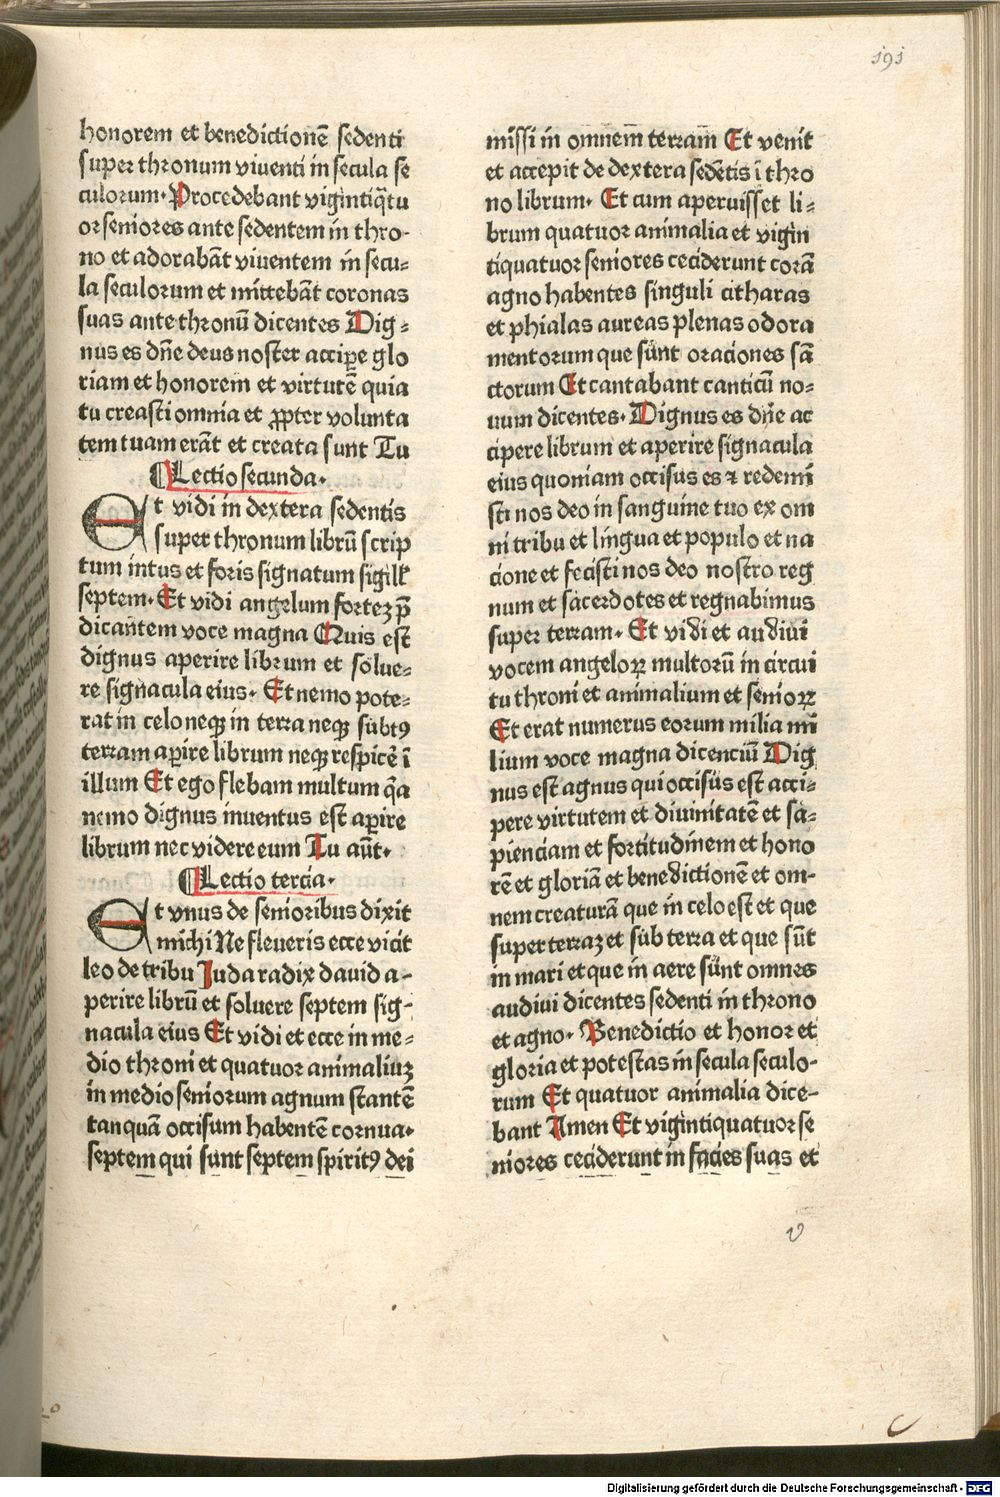 191
honorem et benedictionē sedenti
super thronum viventi in secula se
culorum· Procedebant vigintiq̄tu
or seniores ante sedentem in thro-
no et adorabāt viventem in secu=
la seculorum et mittebāt coronas
suas ante thronū dicentes Dig=
nus es dn̄e deus noster accipe glo
riam et honorem et virtutē quia
tu creasti omnia et ꝓpter volunta
tem tuam erāt et creata sunt Tu
Lectio secunda·
Et vidi in dextera sedentis
super thronum librū scrip
tum intus et foris signatum sigill'
septem· Et vidi angelum fortez p̄
dicantem voce magna Quis est
dignus aperire librum et solue=
re signacula eius· Et nemo pote=
rat in celo neqꝫ in terra neqꝫ subtꝰ
terram aꝑire librum neqꝫ respicē ī
illum Et ego flebam multum q̄a
nemo dignus inuentus est aꝑire
librum nec videre eum Tu aūt·
Lectio tercia·
Et vnus de senioribus dixit
michi Ne fleueris ecce vicit
leo de tribu Juda radix david a-
perire librū et soluere septem sig-
nacula eius Et vidi et ecce in me=
dio throni et quatuor animaliuꝫ
in medio seniorum agnum stantē
tanquā occisum habentē cornua·
septem qui sunt septem spiritꝰ dei
missi in omnem terram Et venit
et accepit de dextera sedētis ī thro
no librum· Et cum aperuisset li=
brum quatuor animalia et vigin
tiquatuor seniores ceciderunt corā
agno habentes singuli citharas
et phialas aureas plenas odora
mentorum que sunt oraciones sā
ctorum Et cantabant canticū no=
uum dicentes· Dignus es dn̄e ac
cipere librum et aperire signacula
eius quoniam occisus es ⁊ redemi
sti nos deo in sanguine tuo ex om
ni tribu et lingua et populo et na
cione et fecisti nos deo nostro reg
num et sacerdotes et regnabimus
super terram· Et vidi et audiui
vocem angeloꝝ multorū in circui
tu throni et animalium et senioꝝ
Et erat numerus eorum milia mi
lium voce magna dicenciū Dig
nus est agnus qui occisus est acci=
pere virtutem et diuinitatē et sa=
pienciam et fortitudinem et hono
rē et gloriā et benedictionē et om-
nem creaturā que in celo est et que
super terraꝫ et sub terra et que sūt
in mari et que in aere sunt omnes
audiui dicentes sedenti in throno
et agno· Benedictio et honor et
gloria et potestas in secula seculo-
rum Et quatuor animalia dice-
bant Amen Et vigintiquatuor se
niores ceciderunt in facies suas et
v
Digitalisierung gefördert durch die Deutsche Forschungsgemeinschaft - DFG